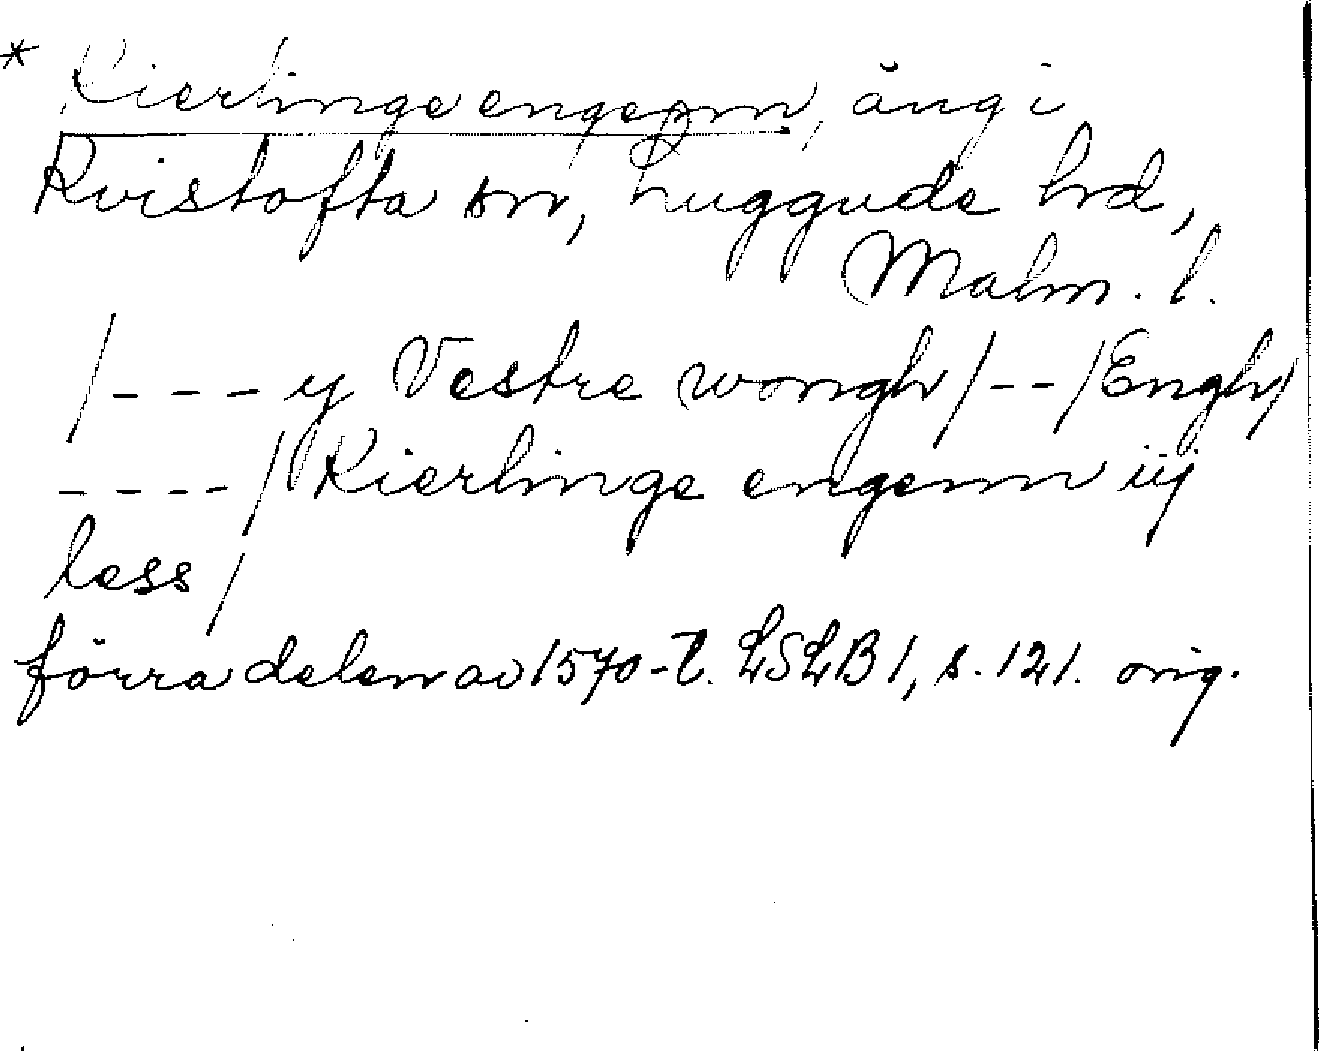 * Kierlinge engenn, äng i
Kvistofta sn, Luggude hd,
Malm. l.
/---y Vestre wongh/--/Engh/
----/Kierlinge engenn iij
less/
förra delen av 1570-t. LSLB 1, s. 121. orig.